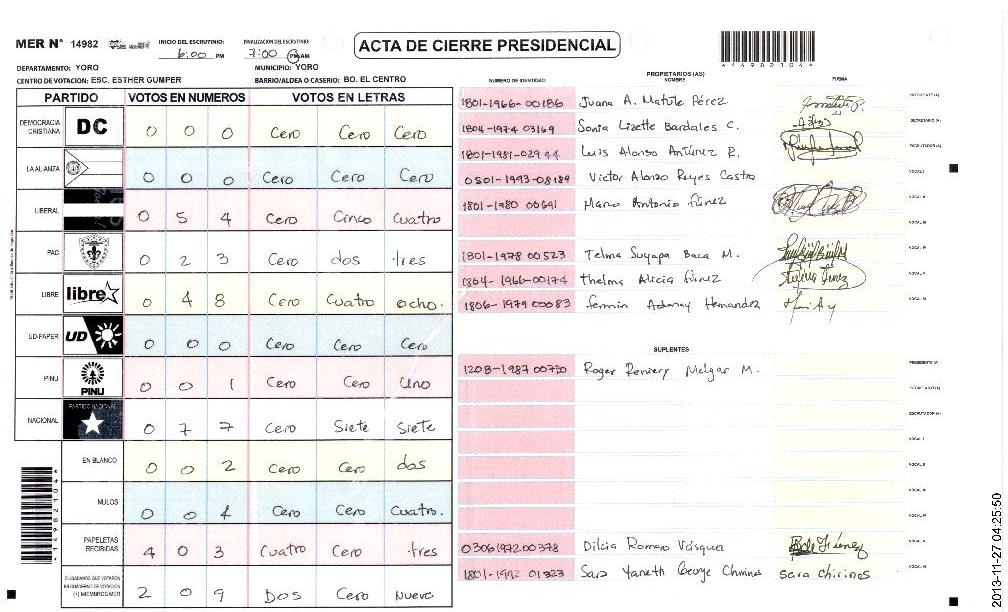 MER N° 14982
INICIO DEL ESCRUTINIO: 6:00 PM
FINALIZACION DEL ESCRUTINIO: 7:00 PM AM
ACTA DE CIERRE PRESIDENCIAL
*149821044*
DEPARTAMENTO: YORO
MUNICIPIO: YORO
CENTRO DE VOTACION: ESC. ESTHER GUMPER
BARRIO/ALDEA O CASERIO: BO. EL CENTRO
PARTIDO VOTOS EN NUMEROS VOTOS EN LETRAS
DEMOCRACIA CRISTIANA DC 0 0 0 Cero Cero Cero
LA ALIANZA 0 0 0 Cero Cero Cero
LIBERAL 0 5 4 Cero Cinco cuatro
PAC 0 2 3 Cero dos tres
LIBRE libre 0 4 8 Cero Cuatro ocho.
UD-FAPER UD 0 0 0 Cero Cero Cero
PINU PINU 0 0 1 Cero Cero Uno
NACIONAL PARTIDO NACIONAL 0 7 7 Cero Siete Siete
EN BLANCO 0 0 2 Cero Cero dos
NULOS 0 0 4 Cero Cero Cuatro.
PAPELETAS RECIBIDAS 4 0 3 Cuatro Cero tres
CIUDADANOS QUE VOTARON EN CUADERNO DE VOTACION (+) MIEMBROS MER 2 0 9 Dos Cero Nueve
*149821044*
PROPIETARIOS (AS)
NUMERO DE IDENTIDAD NOMBRE FIRMA
1801-1966-00186 Juana A. Matute Pérez PRESIDENTE (A)
1804-1974 03169 Sonia Lizette Bardales C. SECRETARIO (A)
1801-1981-02944 Luis Alonso Antúnez R. ESCRUTADOR (A)
0501-1993-08189 Victor Alonzo Reyes Castro VOCAL I
1801-1980 00691 Mario Antonio Fúnez VOCAL II
VOCAL III
1801-1978 00523 Telma Suyapa Baca M. VOCAL IV
1804-1966-00174 Thelma Alicia Fúnez VOCAL V
1806-1979 00083 Fermin Adonay Hernandez VOCAL VI
SUPLENTES
1208-1987 00730 Roger Reniery Melgar M. PRESIDENTE (A)
SECRETARIO (A)
ESCRUTADOR (A)
VOCAL I
VOCAL II
VOCAL III
VOCAL IV
0306197200378 Dilcia Romero Vásquez VOCAL V
1801-1992 01323 Sara Yaneth George Chirinos sara chirinos VOCAL VI
2013-11-27 04:25:50